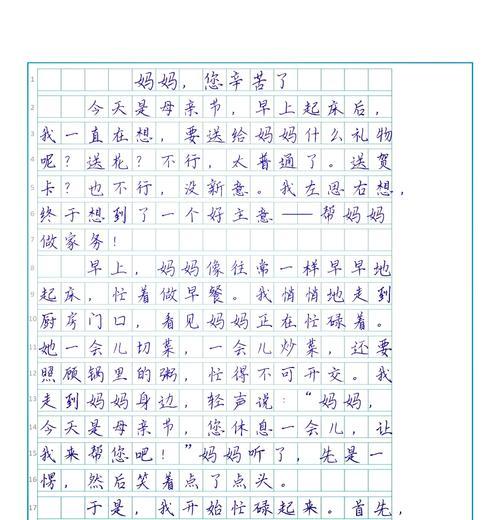 1 妈妈，您辛苦了
2 今天是母亲节，早上起床后，
3 我一直在想，要送给妈妈什么礼物
4 呢？送花？不行，太普通了。送贺
5 卡？也不行，没新意。我左思右想，
6 终于想到了一个好主意——帮妈妈
7 做家务！
8 早上，妈妈像往常一样早早地
9 起床，忙着做早餐。我悄悄地走到
10 厨房门口，看见妈妈正在忙碌着。
11 她一会儿切菜，一会儿炒菜，还要
12 照顾锅里的粥，忙得不可开交。我
13 走到妈妈身边，轻声说：“妈妈，
14 今天是母亲节，您休息一会儿，让
15 我来帮您吧！”妈妈听了，先是一
16 愣，然后笑着点了点头。
17 于是，我开始忙碌起来。首先，